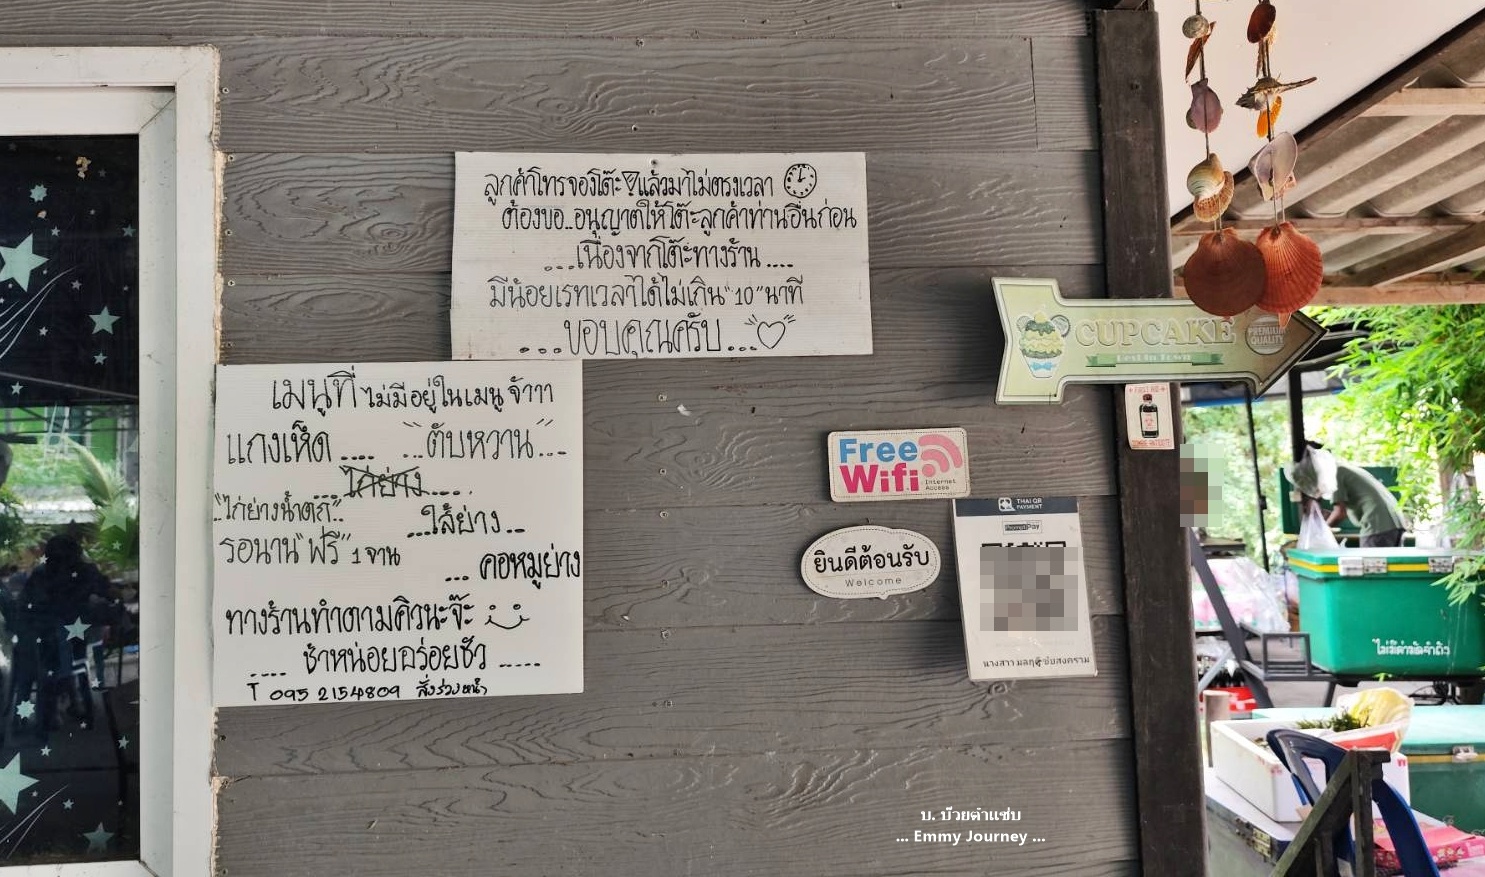 ลูกค้าโทรจองโต๊ะแล้วมาไม่ตรงเวลา
ต้องขอ..อนุญาตให้โต๊ะลูกค้าท่านอื่นก่อน
...เนื่องจากโต๊ะทางร้าน ....
มีน้อยเรทเวลาได้ไม่เกิน "10" นาที
...ขอบคุณครับ...
เมนูที่ ไม่มีอยู่ในเมนู จ้าาา
แกงเห็ด .... "ตับหวาน"...
ไก่ย่าง....
"ไก่ย่างน้ำตก".. ...ใส้ย่าง...
รอนาน "ฟรี" 1 จาน
... คอหมูย่าง
ทางร้านทำตามคิวนะจ๊ะ
.... ช้าหน่อยอร่อยชัว .....
T 095 2154809 สั่งล่วงหน้า
CUPCAKE
Best in Town
PREMIUM QUALITY
FIRST AID
Free
Wifi
Internet Access
THAI QR PAYMENT
PromptPay
ยินดีต้อนรับ
Welcome
นางสาว
ไม่มีค่ามัดจำถัง
บ. บ๊วยตำแซ่บ
... Emmy Journey ...